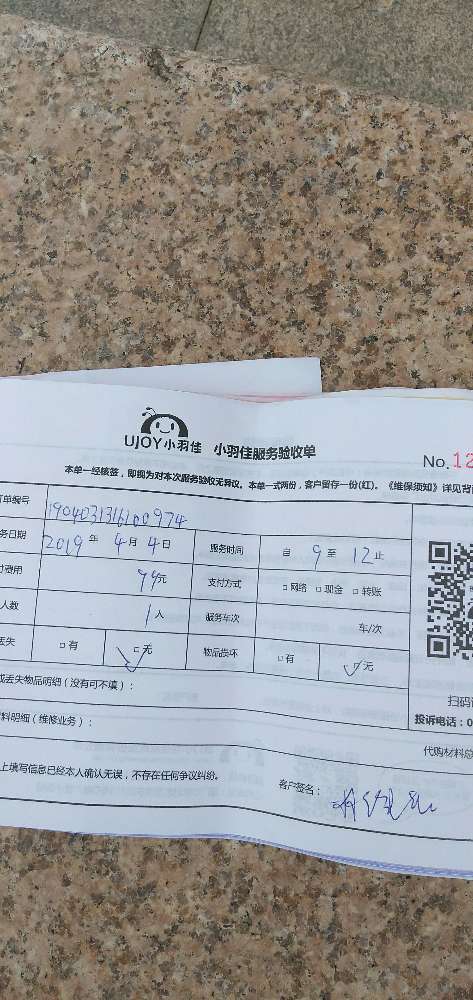 UJOY小羽佳 小羽佳服务验收单
No.12
本单一经核签，即视为对本次服务验收无异议。本单一式两份，客户留存一份(红)。《维保须知》详见背
单编号 1904031316100974
务日期 2019年4月4日 服务时间 自9至12止
费用 94元 支付方式 □网络 □现金 □转账
人数 1人 服务车次 车/次
丢失 □有 □无 物品损坏 □有 □无
或丢失物品明细（没有可不填）：
扫码
料明细（维修业务）：
投诉电话：0
代购材料总
上填写信息已经本人确认无误，不存在任何争议纠纷。 客户签名：